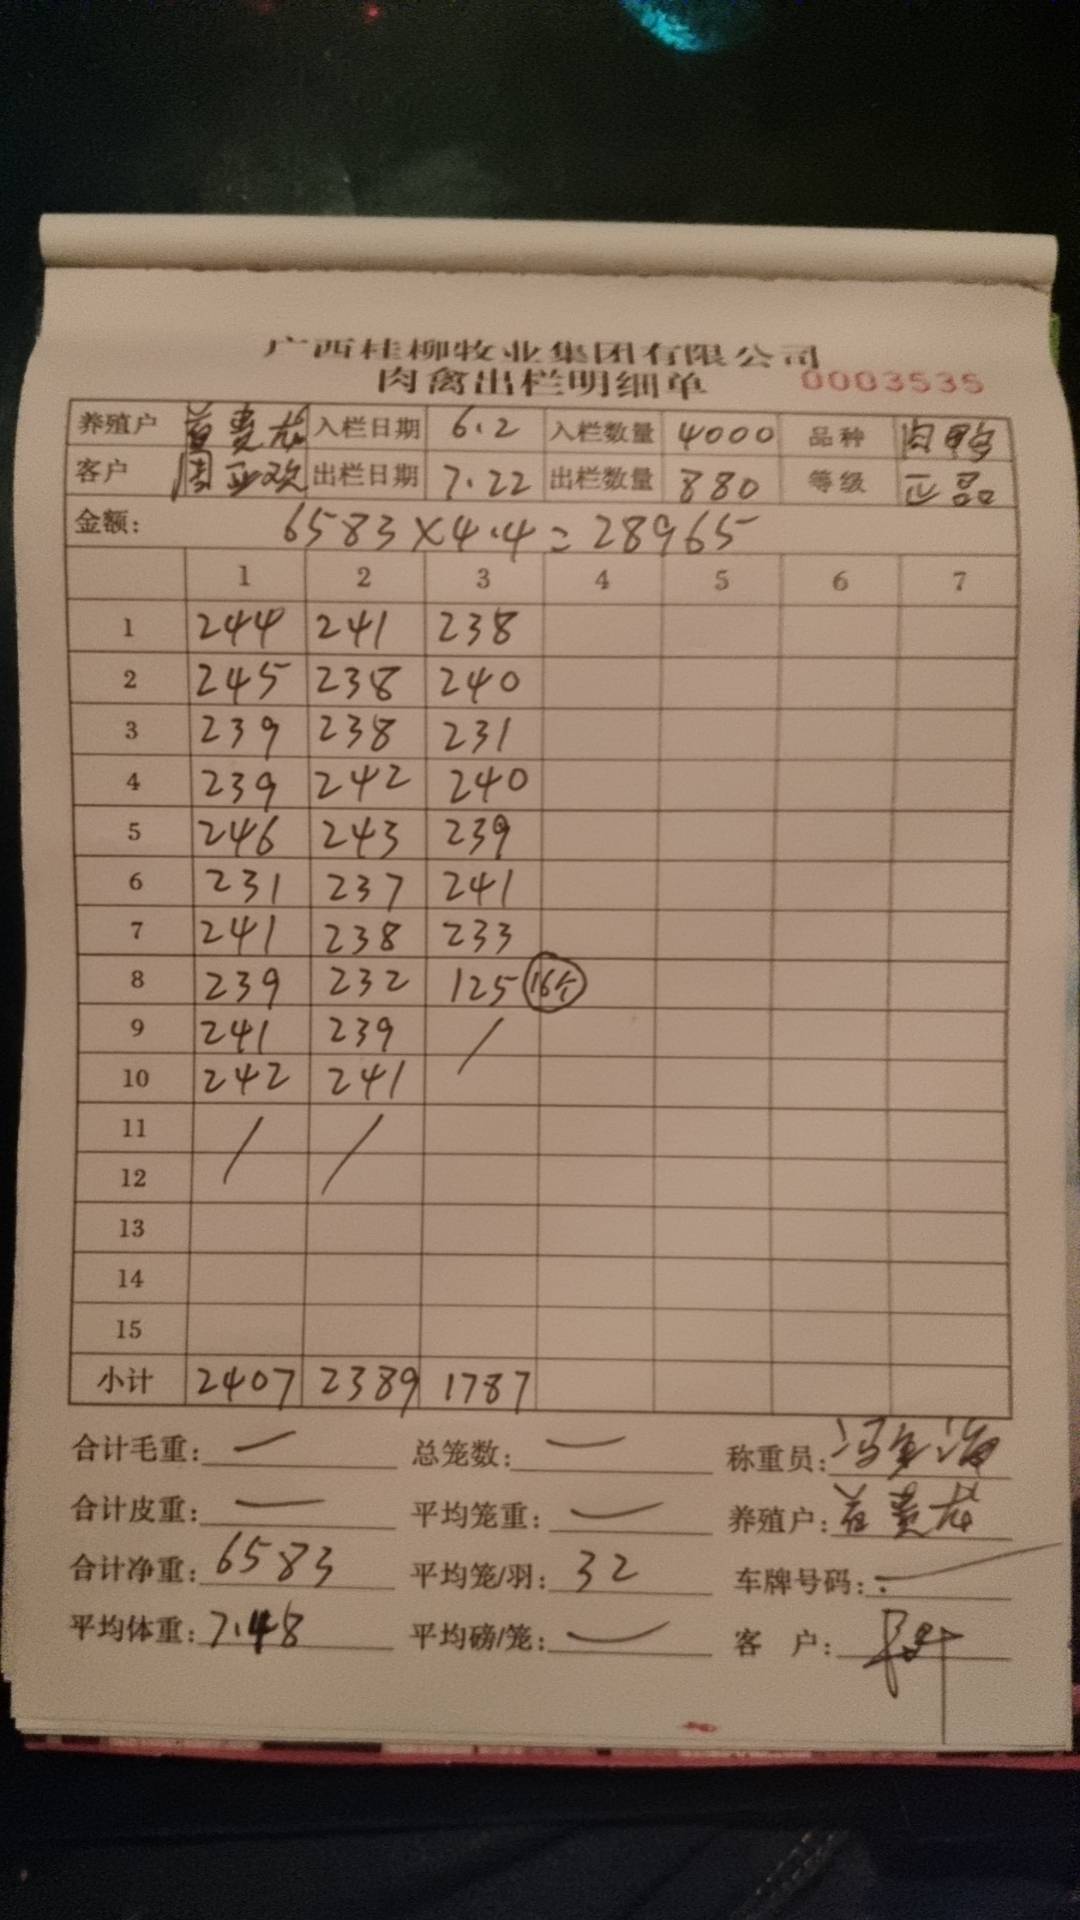 广西桂柳牧业集团有限公司
肉禽出栏明细单 0003535
养殖户 黄贵龙 入栏日期 6.2 入栏数量 4000 品种 肉鸭
客户 周亚欢 出栏日期 7.22 出栏数量 880 等级 正品
金额: 6583×4.4=28965
1 2 3 4 5 6 7
1 244 241 238
2 245 238 240
3 239 238 231
4 239 242 240
5 246 243 239
6 231 237 241
7 241 238 233
8 239 232 125 16个
9 241 239 /
10 242 241
11 / /
12
13
14
15
小计 2407 2389 1787
合计毛重: — 总笼数: — 称重员:
合计皮重: — 平均笼重: — 养殖户: 黄贵龙
合计净重: 6583 平均笼/羽: 32 车牌号码: —
平均体重: 7.48 平均磅/笼: — 客 户: